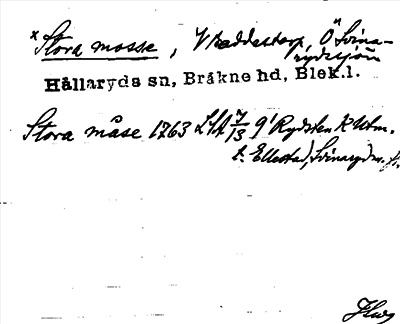 * Stora mosse, V Baddestorp, Ö Svina-
rydsjön
Hällaryds sn, Bräkne hd, Blek.l.
Stora måse 1763 LSA 7/13 g' Rydsten k Utm.
t. Ellestad, Svinaryds